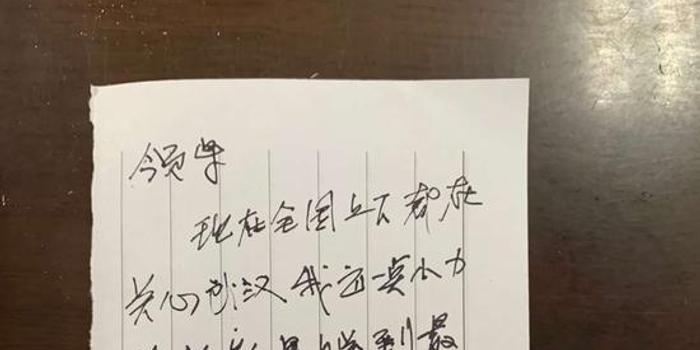 领导
现在全国上下都在
关心武汉 我这一点小力
到最